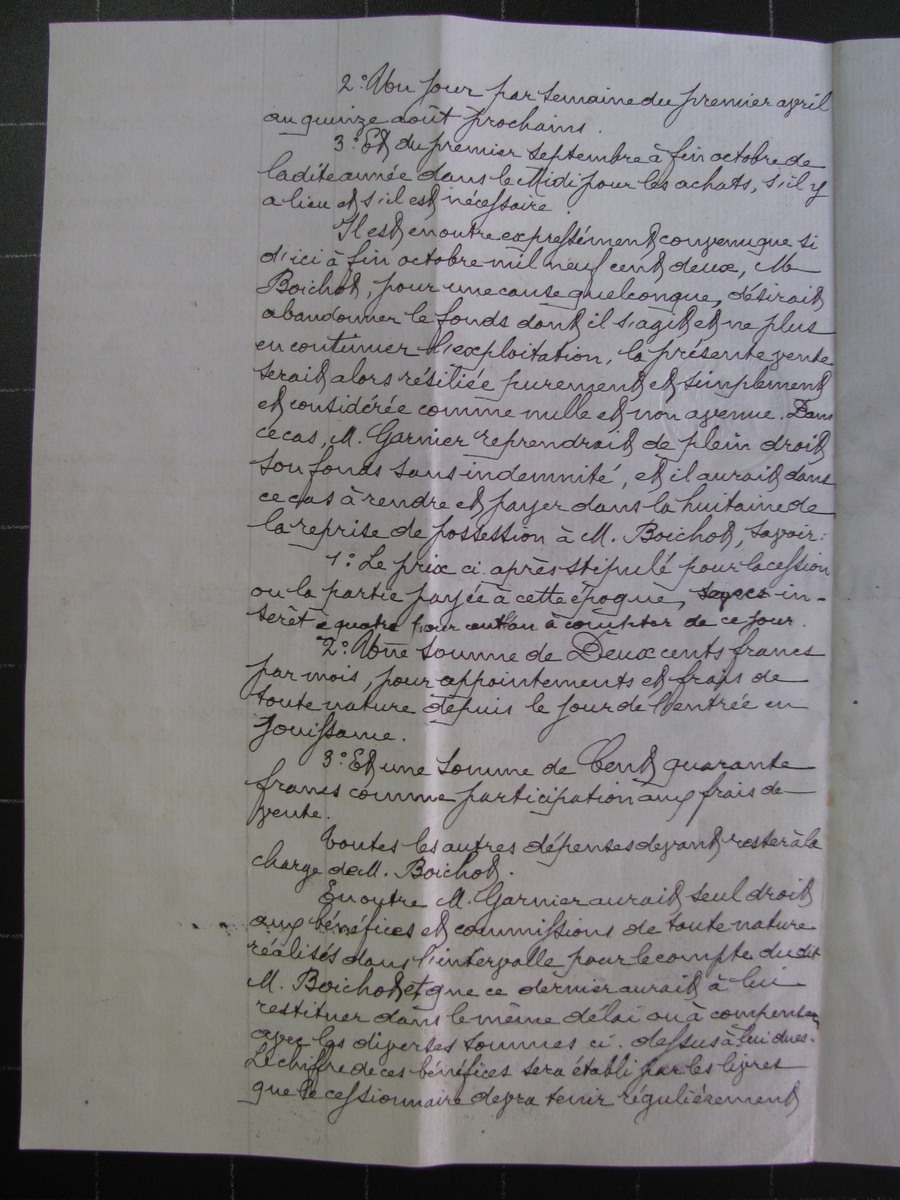 2° Un jour par semaine du premier avril
au quinze août prochains.
3° Et du premier septembre à fin octobre de
ladite année dans le Midi pour les achats, s'il y
a lieu et s'il est nécessaire.
Il est en outre expressément convenu que si
d'ici à fin octobre mil neuf cent deux, M
Boichot, pour une cause quelconque, désirait
abandonner le fonds dont il s'agit et ne plus
en continuer l'exploitation, la présente vente
serait alors résiliée purement et simplement
et considérée comme nulle et non avenue. Dans
ce cas, M. Garnier reprendrait de plein droit
son fonds sans indemnité, et il aurait dans
ce cas à rendre et payer dans la huitaine de
la reprise de possession à M. Boichot, savoir:
1° Le prix ci-après stipulé pour la cession
ou la partie payée à cette époque, in-
térêt à quatre pour cent l'an à compter de ce jour.
2° Une somme de Deux cents francs
par mois, pour appointements et frais de
toute nature depuis le jour de l'entrée en
jouissance.
3° Et une somme de Cent quarante
francs comme participation aux frais de
vente.
Toutes les autres dépenses devant rester à la
charge de M. Boichot.
En outre M. Garnier aurait seul droit
aux bénéfices et commissions de toute nature
réalisés dans l'intervalle pour le compte du dit
M. Boichot et que ce dernier aurait à lui
restituer dans le même délai ou à compenser
avec les diverses sommes ci-dessus à lui dues.
Le chiffre de ces bénéfices sera établi par les livres
que le cessionnaire devra tenir régulièrement